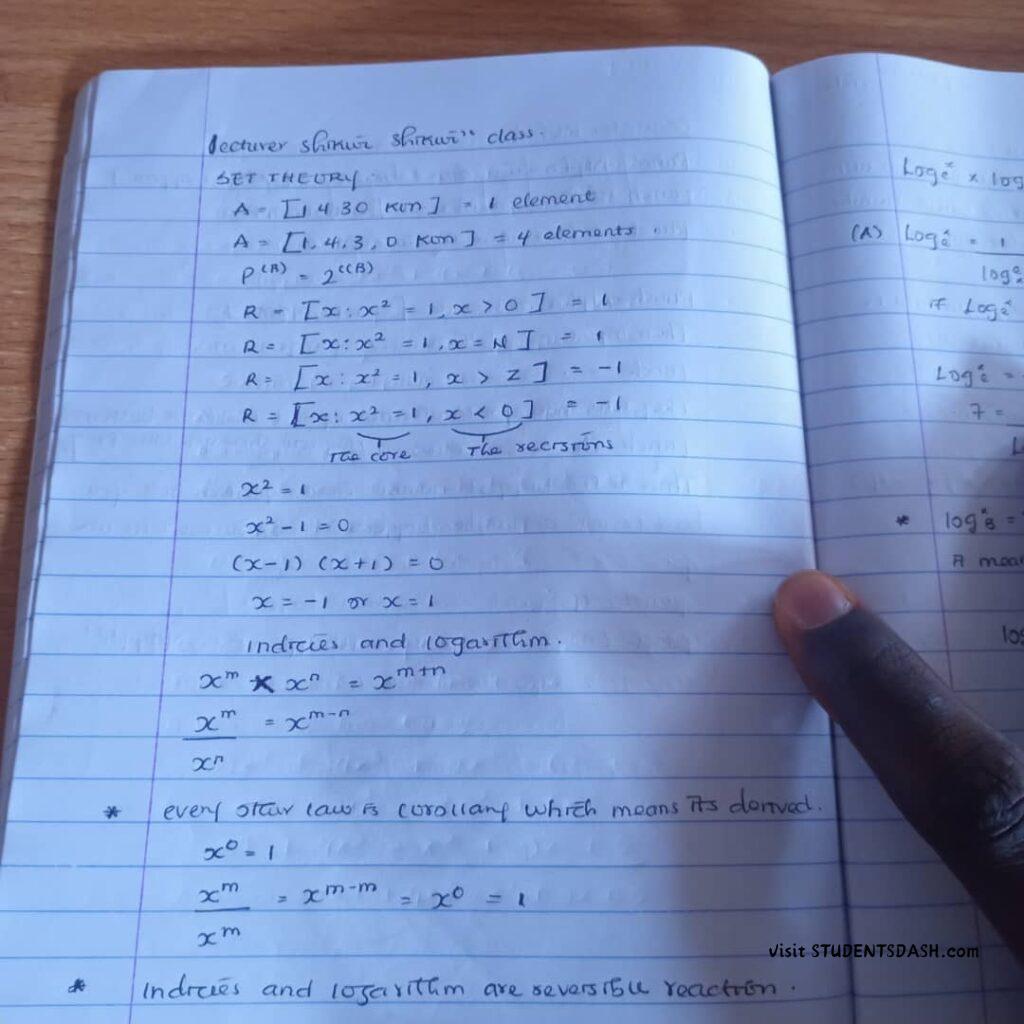 lecturer shikwi shikwi" class.
SET THEORY.
A = [1 4 3 0 Kun] = 1 element
A = [1, 4, 3, 0 Kun] = 4 elements.
P⁽ᴮ⁾ = 2
R = [x : x² = 1, x > 0] = 1
R = [x : x² = 1, x = N] = 1
R = [x : x² = 1, x > Z] = -1
R = [x : x² = 1, x < 0] = -1
The core The
x² = 1
x² - 1 = 0
(x-1) (x+1) = 0
x = -1 or x = 1
indicies and logarithm.
xᵐ × xⁿ = xᵐ⁺ⁿ
xᵐ = xᵐ⁻ⁿ
xⁿ
* every other law is corollary which means its derived.
x⁰ = 1
xᵐ = xᵐ⁻ᵐ = x⁰ = 1
xᵐ
* indicies and logarithm are reversible reaction.
Log × log
(A) Log = 1
log
if Log
Log =
7 =
* log =
A
visit STUDENTSDASH.com